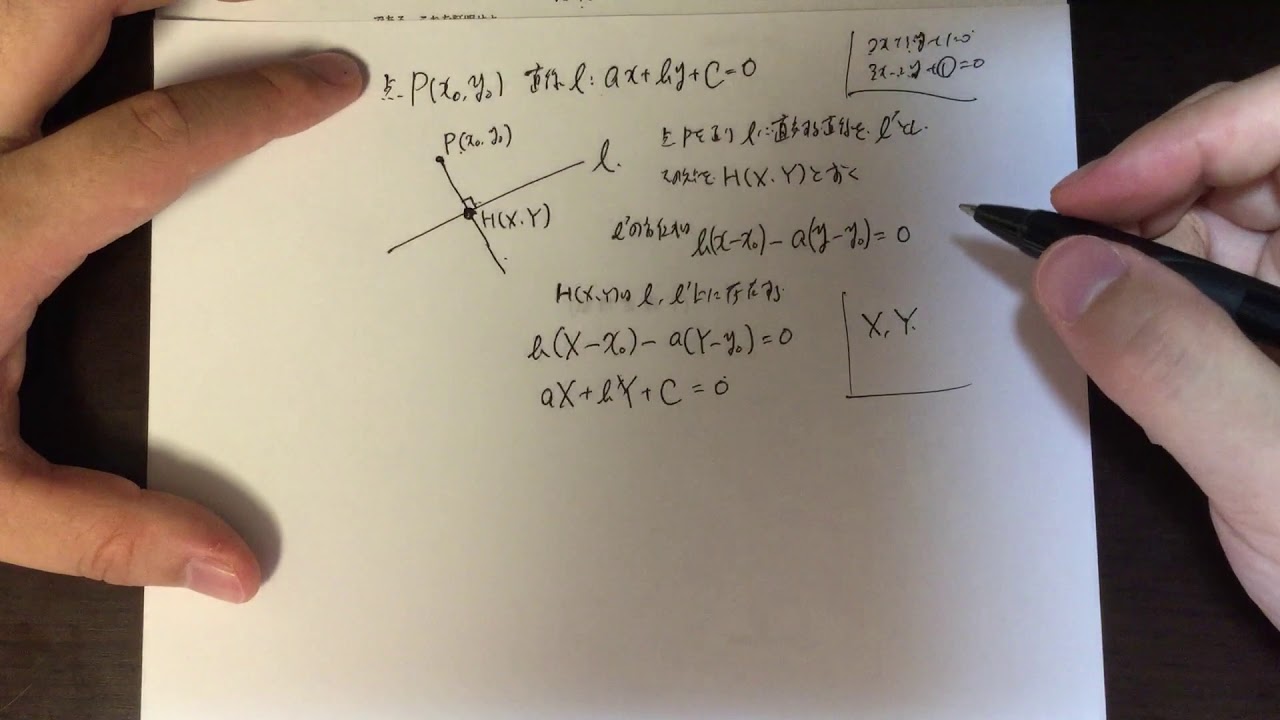 点P(x₀,y₀) 直線 l: ax+by+c=0
P(x₀,y₀)
l.
H(X,Y)
点Pを通り lに直交する直線を l'とし.
その交点を H(X,Y)とおく
l'の方程式は b(x-x₀)-a(y-y₀)=0
H(X,Y)は l, l'上に存在する
b(X-x₀)-a(Y-y₀)=0
aX+bY+C=0
X,Y.